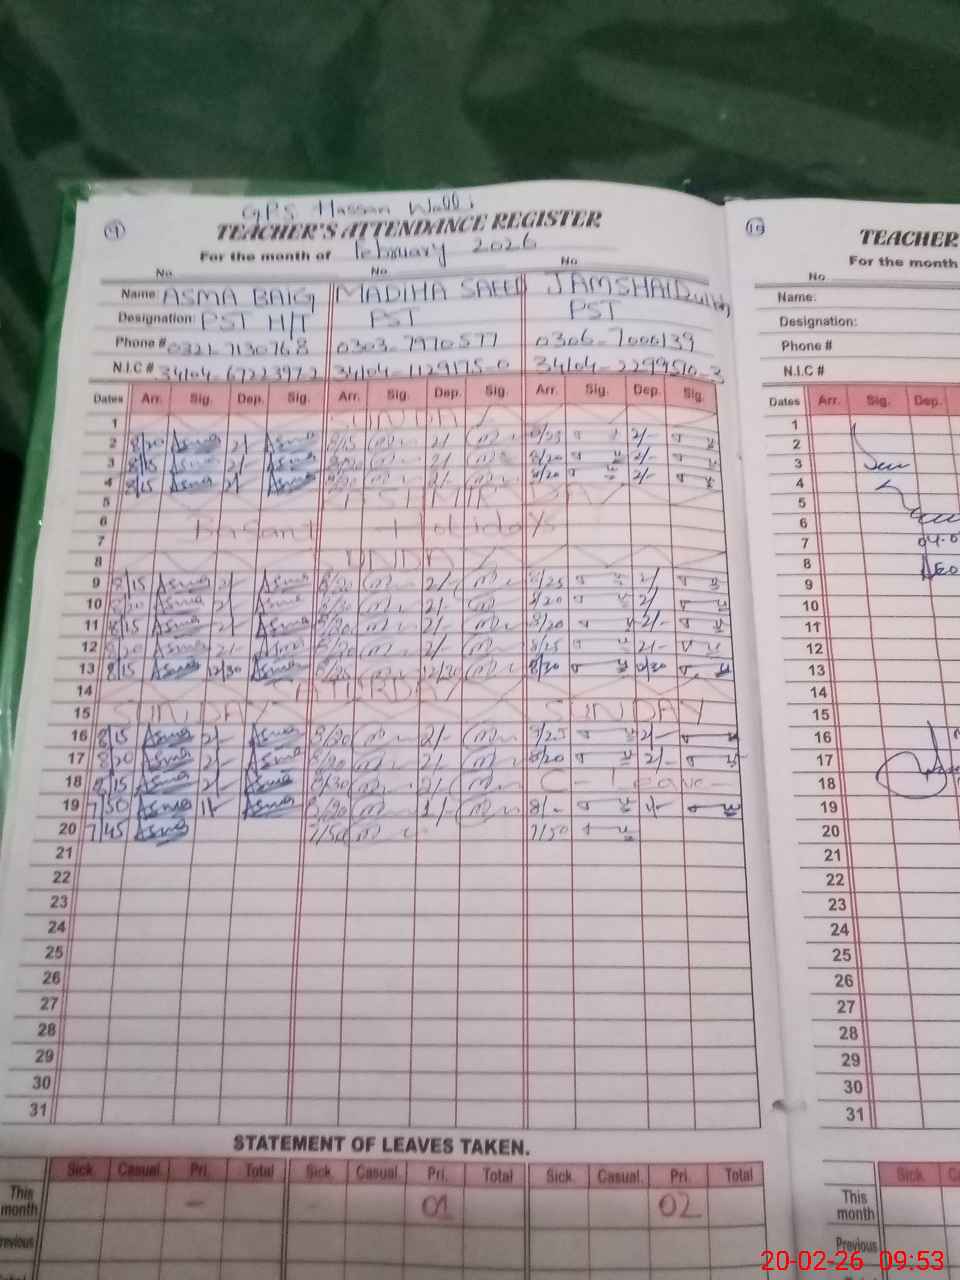 GPS Hassan Walli
19
TEACHER'S ATTENDANCE REGISTER
For the month of February 2026
No. No. No
Name ASMA BAIG MADIHA SAEED JAMSHAID
Designation: PST H/T PST PST
Phone # 0321-7130768 0303-7970577 0306-7000139
N.I.C # 34104-6722397-2 34104-1129175-0 34104-2299510-3
Dates Arr. Sig. Dep. Sig. Arr. Sig. Dep. Sig. Arr. Sig. Dep. Sig.
1 SUNDAY
2 8/20 Asma 2/- Asma 8/15 2/- 8/25 2/-
3 8/15 Asma 2/- Asma 8/20 2/- 8/20 2/-
4 8/15 Asma 2/- Asma 8/20 2/- 8/20 2/-
5 KASHMIR DAY
6 Basant Holidays
7
8 SUNDAY
9 8/15 Asma 2/- Asma 8/20 2/- 8/25 2/
10 8/20 Asma 2/- Asma 8/30 2/- 8/20 2/
11 8/15 Asma 2/- Asma 8/20 2/- 8/20 2/-
12 8/20 Asma 2/- Asma 8/20 2/- 8/25 2/-
13 8/15 Asma 12/30 Asma 8/25 12/30 8/20 12/30
14 SATURDAY
15 SUNDAY SUNDAY
16 8/15 Asma 2/- Asma 8/20 2/- 8/25 2/-
17 8/20 Asma 2/- Asma 8/20 2/- 8/20 2/-
18 8/15 Asma 2/- Asma 8/30 2/- C-Leave
19 7/50 Asma 1/- Asma 8/20 1/- 8/- 1/-
20 7/45 Asma 7/50 7/50
21
22
23
24
25
26
27
28
29
30
31
STATEMENT OF LEAVES TAKEN.
Sick Casual Pri. Total Sick. Casual Pri. Total Sick. Casual Pri. Total
This month - 01 02
Previous
TEACHER
For the month
No
Name:
Designation:
Phone #
N.I.C #
Dates Arr. Sig. Dep.
1
2
3
4
5
6
7
8
9
10
11
12
13
14
15
16
17
18
19
20
21
22
23
24
25
26
27
28
29
30
31
Sick.
This month
Previous
20-02-26 09:53